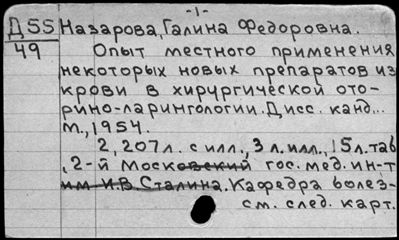 -1-
Д55 Назарова, Галина Федоровна.
49
Опыт местного применения
некоторых новых препаратов из
крови в хирургической ото-
рино-ларингологии. Дисс. канд...
М., 1954.
2, 207 л. с илл., 3 л. илл., 15 л. таб
, 2-й Московский гос. мед. ин-т
им И.В. Сталина. Кафедра болез-
см. след. карт.